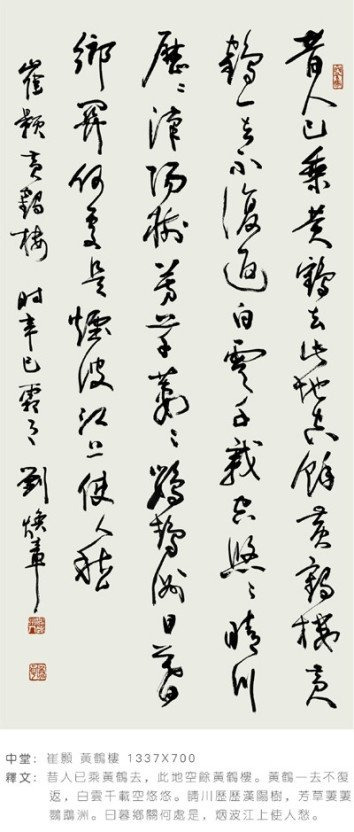 昔人已乘黄鶴去此地空餘黄鶴楼黄
鶴一去不復返白雲千載空悠〻晴川
歷〻漢陽樹芳草萋〻鸚鵡洲日暮
鄉關何處是煙波江上使人愁
崔顥黄鶴楼 时辛巳霜月 劉煥章
中堂：崔顥 黃鶴樓 1337X700
釋文：昔人已乘黃鶴去，此地空餘黃鶴樓。黃鶴一去不復
返，白雲千載空悠悠。晴川歷歷漢陽樹，芳草萋萋
鸚鵡洲。日暮鄉關何處是，烟波江上使人愁。